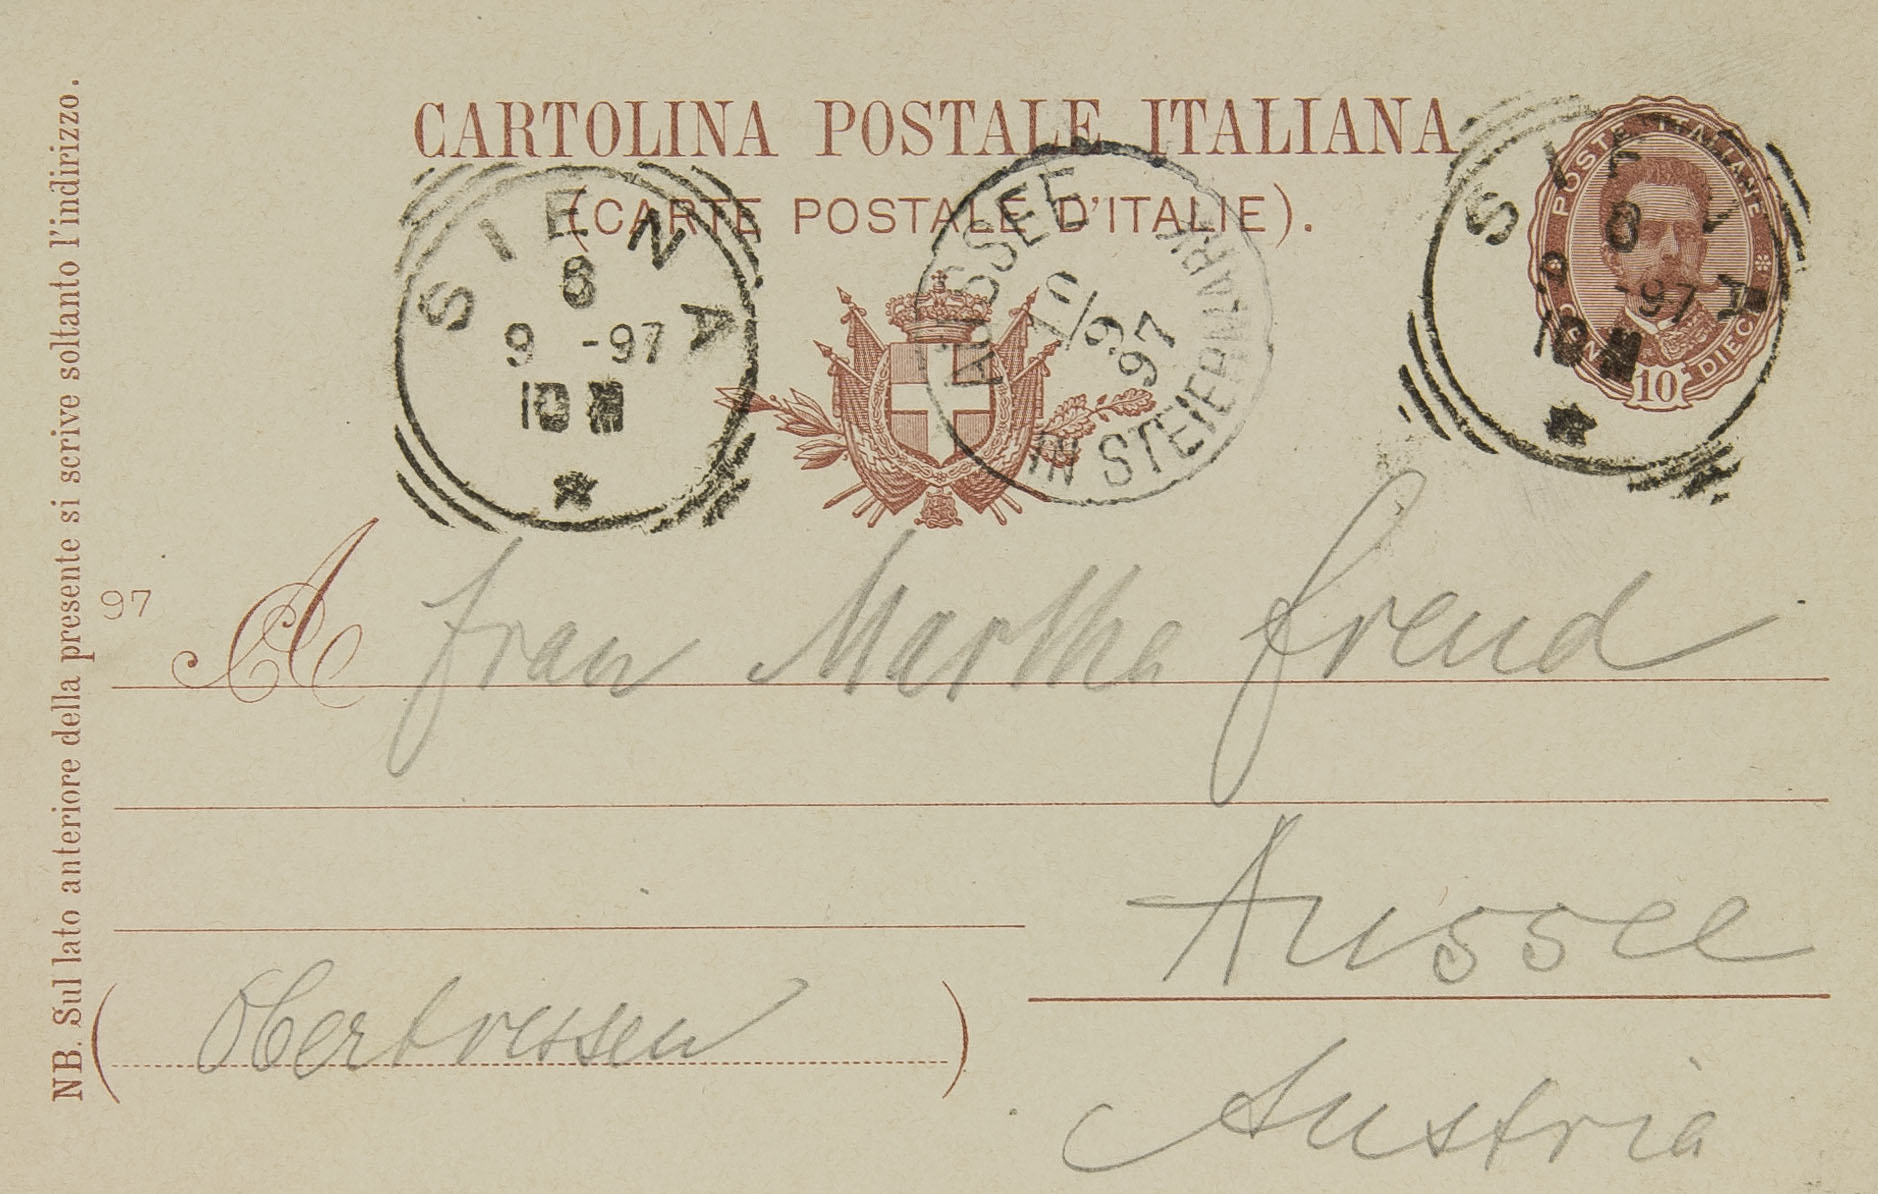 CARTOLINA POSTALE ITALIANA
(CARTE POSTALE D'ITALIE).
SIENA
8
9 -97
10 M
AUSSEE
10/9
97
IN STEIERMARK
SIENA
8
9 -97
10 M
POSTE ITALIANE
DIECI
10
NB. Sul lato anteriore della presente si scrive soltanto l'indirizzo.
97
A Frau Martha Freud
Aussee
(Obertressen)
Austria